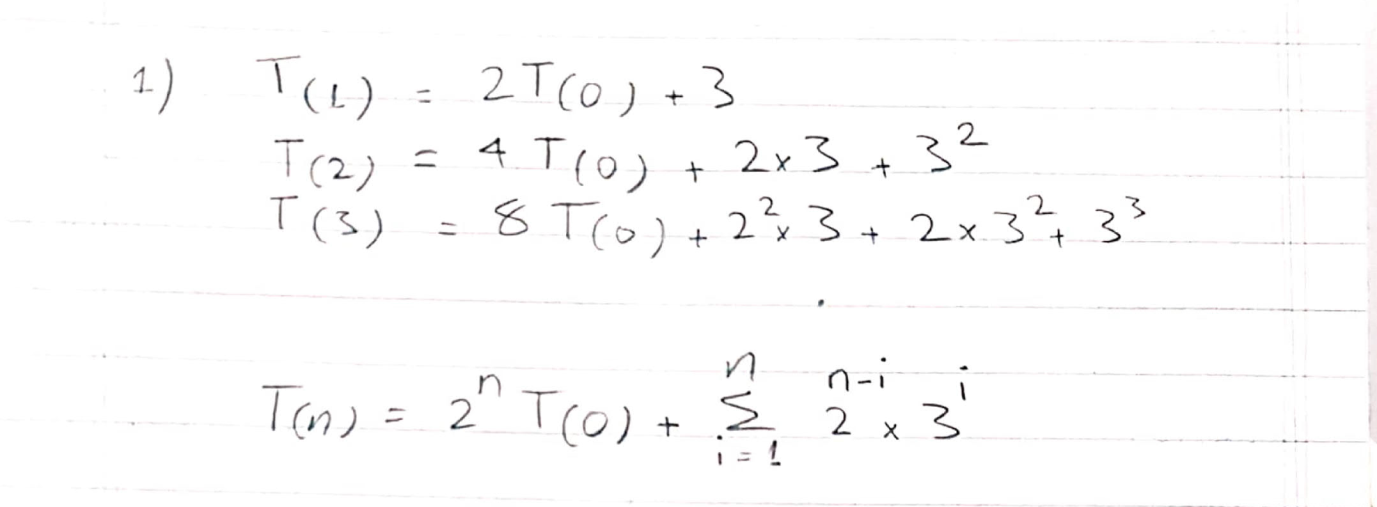 1) T(1) = 2T(0) + 3
T(2) = 4 T(0) + 2×3 + 3²
T(3) = 8 T(0) + 2²×3 + 2×3² + 3³
T(n) = 2ⁿ T(0) + Σᵢ₌₁ⁿ 2ⁿ⁻ⁱ × 3ⁱ